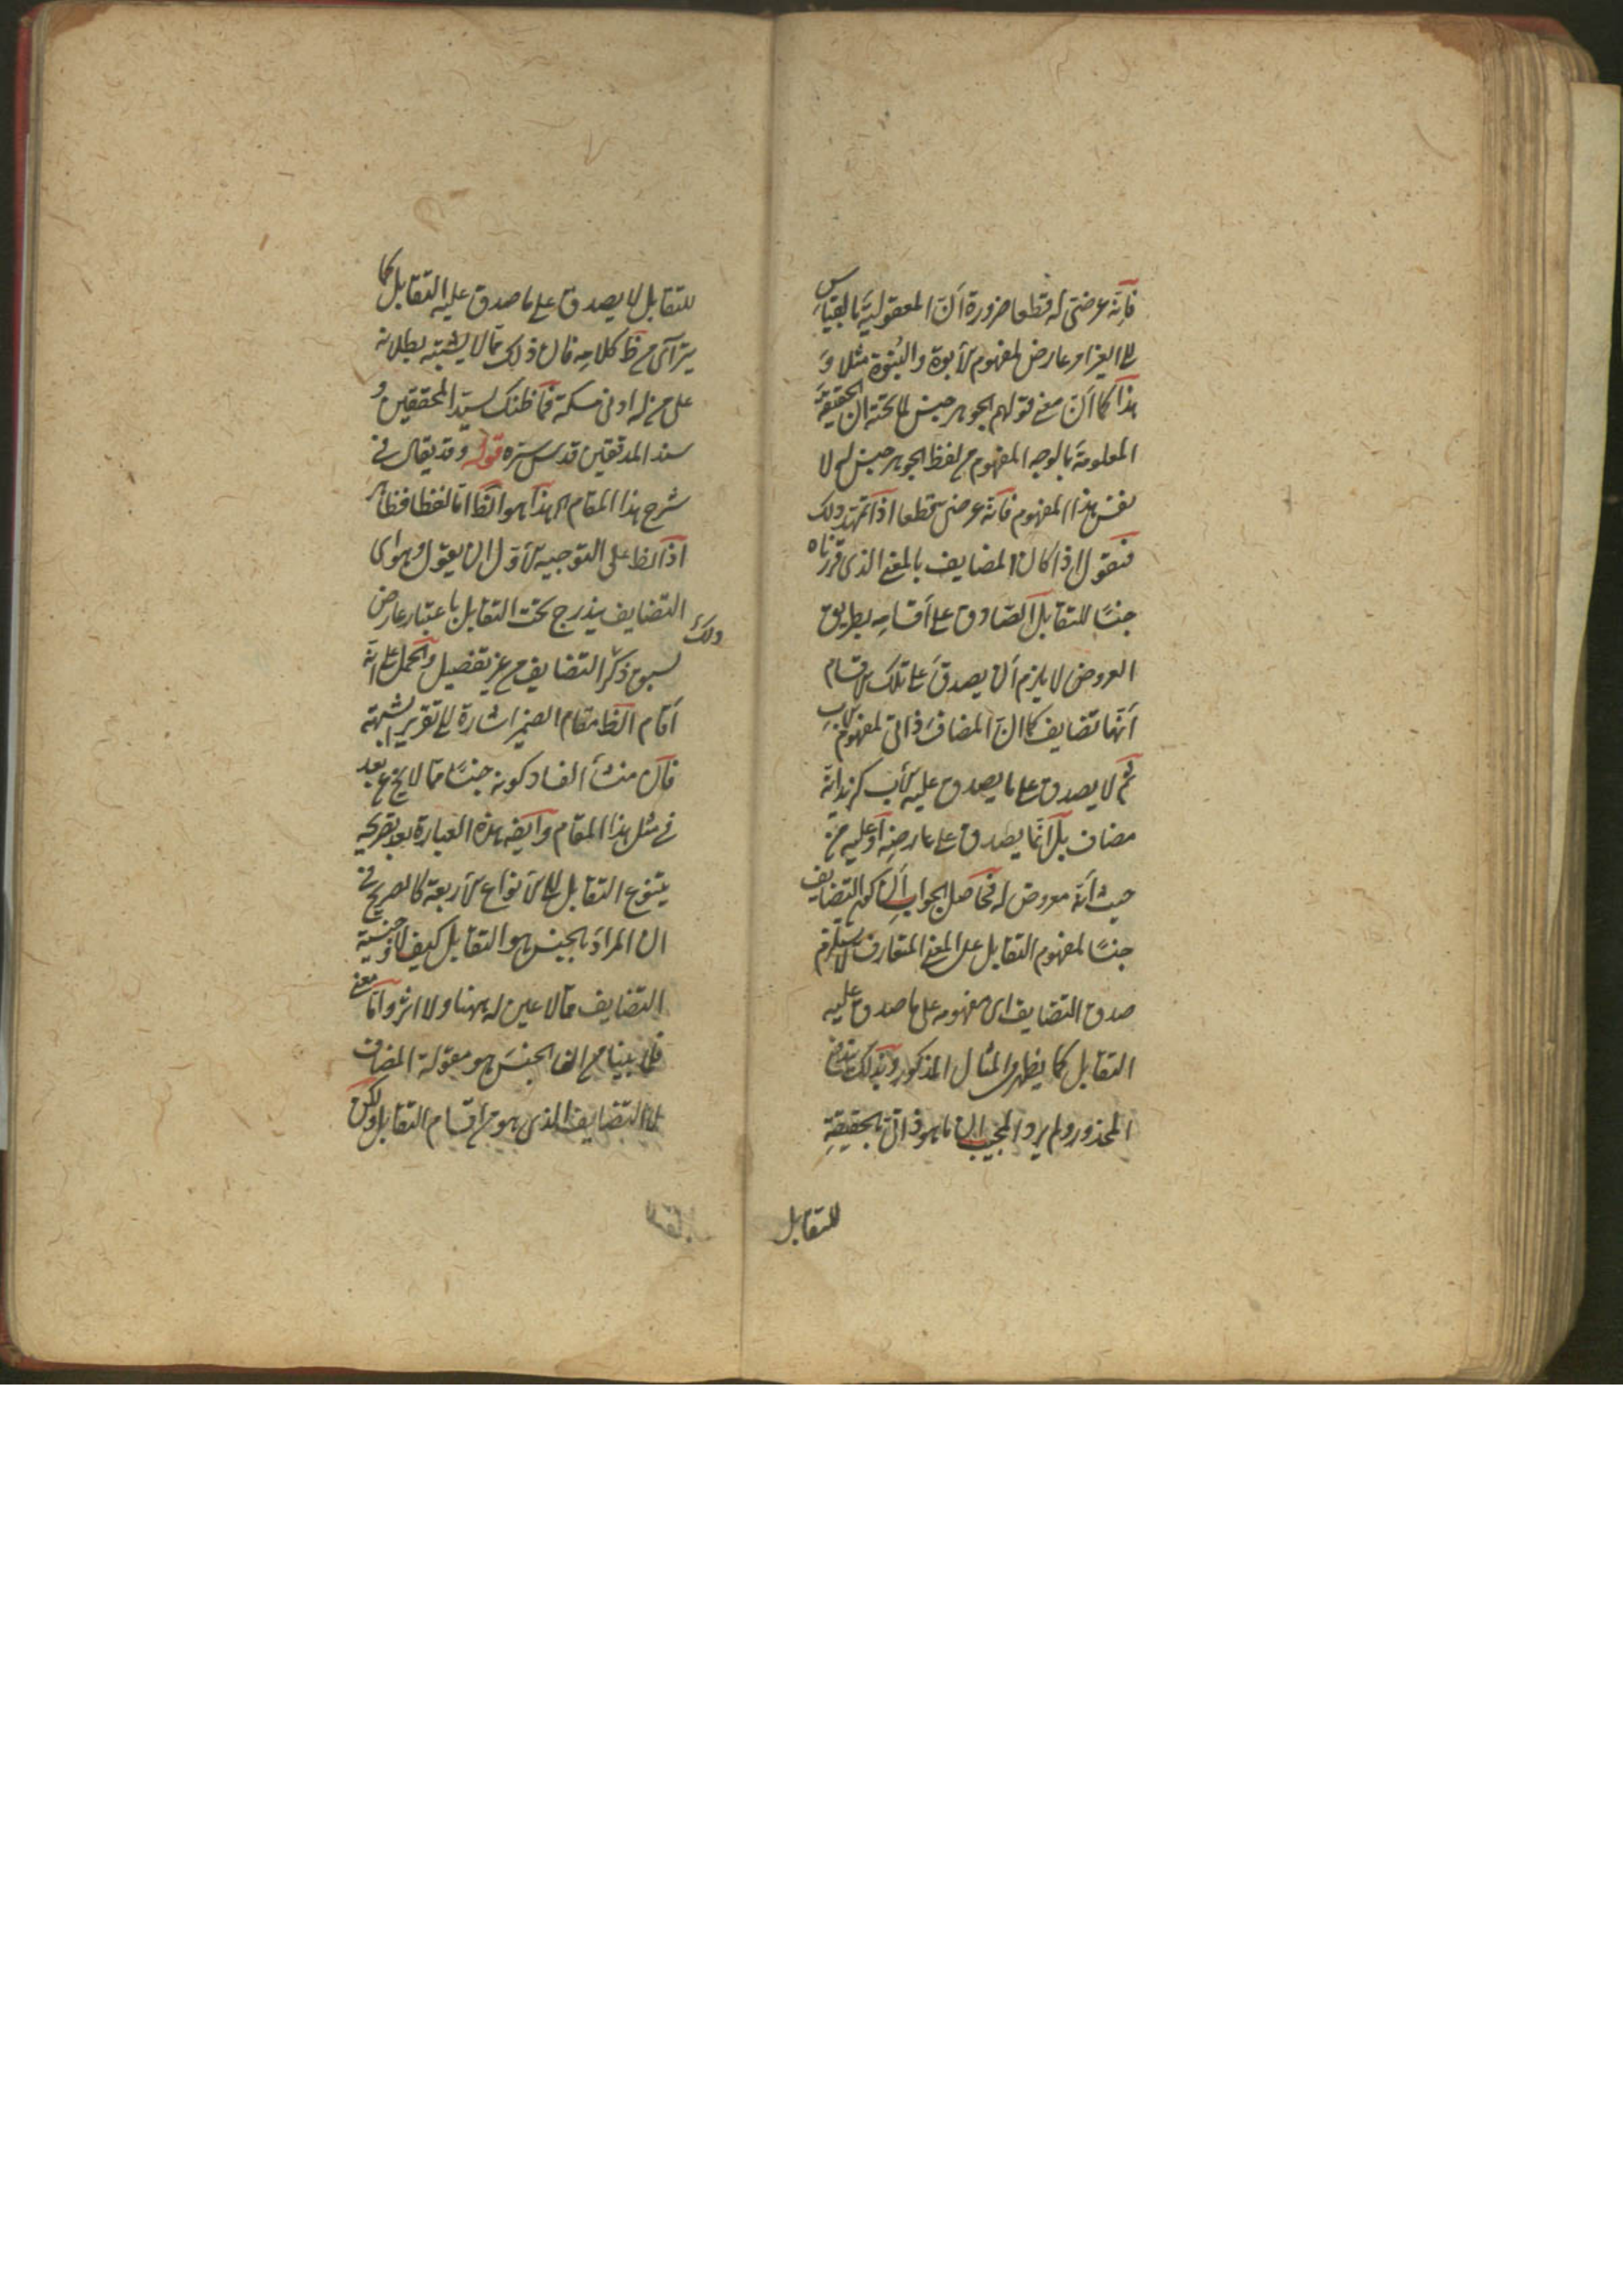 فانه عرضى له قطعا ضرورة ان المعقولية بالقياس
الى الغير امر عارض لمفهوم الأبوة والبنوة مثلا و
هذا كما ان معنى قولهم الجوهر جنس لما تحته ان الحقيقة
المعلومة بالوجه المفهوم من لفظ الجوهر جنس له لا
نفس هذا المفهوم فانه عرضى قطعا اذا تمهد ذلك
فنقول اذا كان المضايف بالمعنى الذى قررناه
جنسًا للتقابل الصادق على أقسامه بطريق
العروض لا يلزم أن يصدق على تلك الاقسام
أنها تضايف كما ان المضاف ذاتى لمفهوم الأب
ثم لا يصدق على ما يصدق عليه الأب كزيد انه
مضاف بل انما يصدق على عارضه أو عليه من
حيث أنه معروض له فحاصل الجواب أن كون التضايف
جنسًا لمفهوم التقابل على المعنى المتعارف لا يستلزم
صدق التضايف اى مفهومه على ما صدق عليه
التقابل كما يظهر من المثال المذكور وبذلك يندفع
المحذور ولم يرد المجيب ان ما هو ذاتى بالحقيقة
للتقابل
للتقابل لا يصدق على ما صدق عليه التقابل كما
يترآى من ظ كلامه فان ذلك مما لا يشتبه بطلانه
على من له ادنى مسكة فما ظنك بسيد المحققين و
سند المدققين قدس سره قوله وقد يقال فى
شرح هذا المقام اه هذا هو الظ اما لفظا فظاهر
اذ الظ على التوجيه الأول ان يقول وهو اى
التضايف يندرج تحت التقابل باعتبار عارض
ذلك
لسبق ذكر التضايف من غير تفصيل والحمل على انه
أقام الظ مقام الضمير اشارة الى تقرير الشبهة
فان منشأ الفساد كونه جنسًا مما لا يخ عن بعد
فى مثل هذا المقام وايض هذه العبارة بعد تصريحه
بتنوع التقابل الى الأنواع الأربعة كالصريح فى
ان المراد بالجنس هو التقابل كيف لا وجنسية
التضايف مما لا عين له ههنا ولا اثر واما معنى
فلما بينا من ان الجنس هو مقولة المضاف
لا التضايف الذى هو من اقسام التقابل ولكن